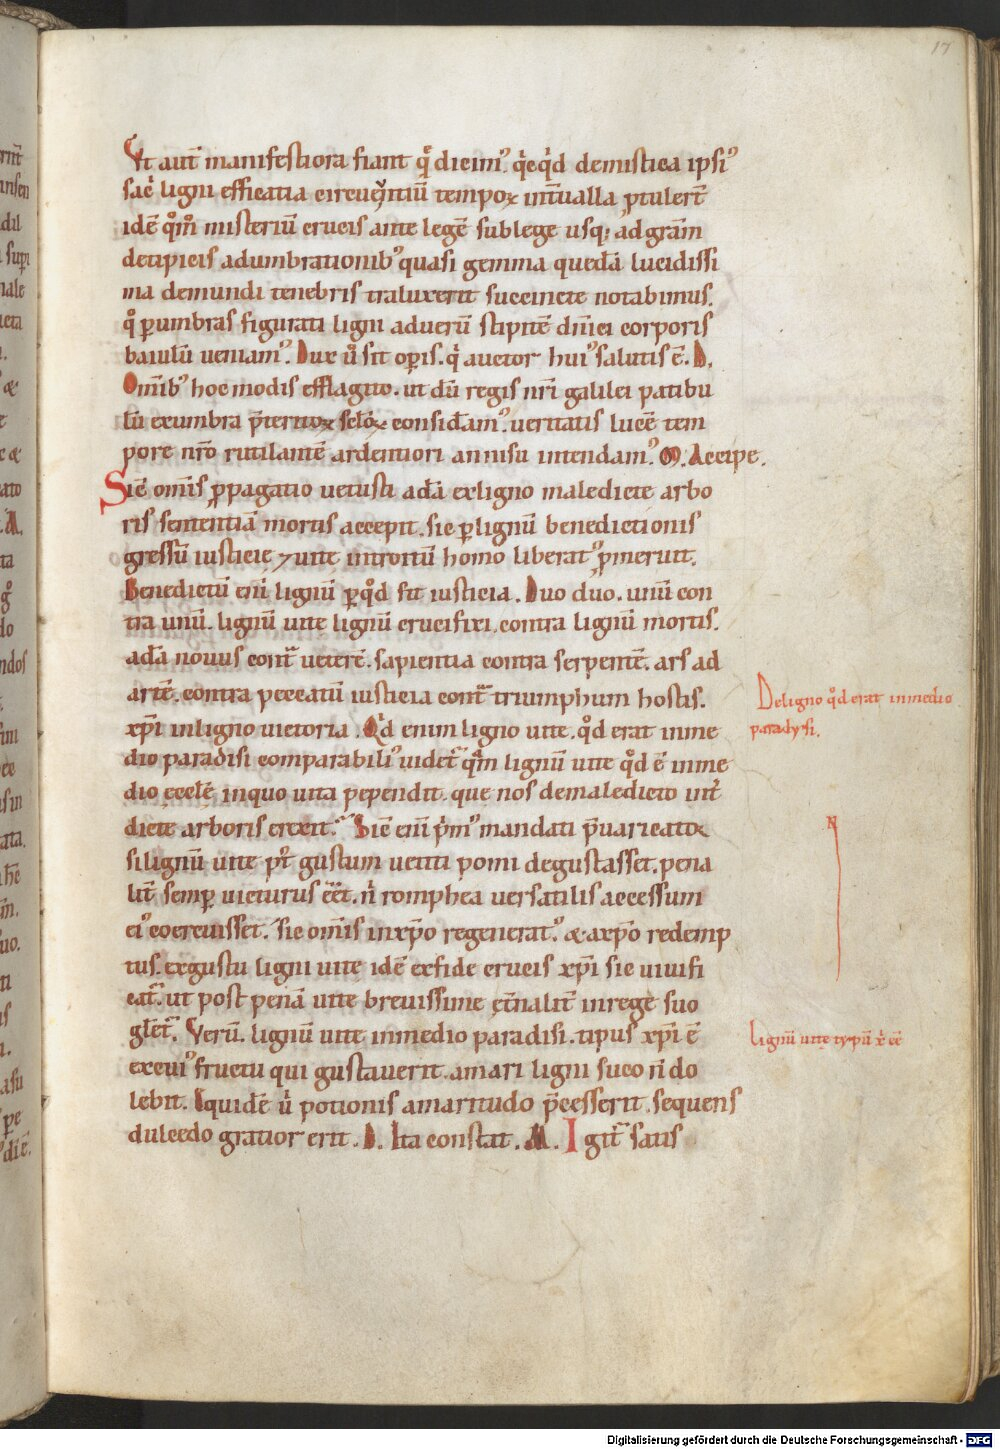 17
Ut aut̄ manifestiora fiant q̊ dicim᷒. qͥcqͥd demistica ipsi᷒
sac̄ ligni efficatia circūentiū tempoꝝ int̄ualla ꝑtulerт̄
idē q̊m̄ misteriū crucis ante legē sublege usq; adgrām
detipicis adumbrationib᷒ quasi gemma quedā lucidissi
ma demundi tenebris traluxerit succincte notabimus.
q̊ ꝑumbras figurati ligni aduerū stipitē dn̄ici corporis
baiulū ueniam᷒. Dux ū sit oꝑis. qͥ auctor hui᷒ salutis ē. D.
Omīb᷒ hoc modis efflagito. ut dū regis nr̄i galilei patibu
lū exumbra p̄teritoꝝ sc̄loꝝ considam᷒. ueritatis lucē tem
pore nr̄o rutilantē ardentiori annisu intendam᷒. M. Accipe.
Sic̄ omīs ꝓpagatio uetusti adā exligno maledicte arbo
ris sententiā mortis accepit. sic ꝑ lignū benedictionis
gressū iusticie ⁊ uite introitū homo liberat᷒ ꝓmeruit.
Benedictū enī lignū ꝑ q̊d fit iusticia. Duo duo. unū con
tra unū. lignū uite lignū crucifixi. contra lignū mortis.
adā nouus cont̄ ueterē. sapientia contra serpentē. ars ad
artē. contra peccatū iusticia cont̄ triumphum hostis.
xp̄i inligno uictoria. Qͥd enim ligno uite. q̊d erat inme
dio paradisi comparabili᷒ uidet̄ qͣm lignū uite q̊d ē inme
dio eccl̄e inquo uita pependit. que nos demaledicto int̄
dicte arboris erexit. Sic̄ enī pͥm᷒ mandati p̄uaricatoꝝ
si lignū uite p᷒t gustum uetiti pomi degustasset. pena
lit̄ semꝑ uicturus ēēt. nͥ romphea uersatilis accessum
ei᷒ coercuisset. sic omīs inxp̄o regenerat᷒. & axp̄o redemp
tus. exgustu ligni uite idē exfide crucis xp̄i sic uiuifi
cat̄. ut post penā uite breuissime et̄nalit̄ inrege suo
glet̄. Verū. lignū uite inmedio paradisi. tipus xp̄i ē
excui᷒ fructu qui gustauerit. amari ligni suco n̄ do
lebit. Siquidē ū potionis amaritudo p̄cesserit. sequens
dulcedo gratior erit. D. Ita constat. M. Igit̄ satis
Deligno q̊d erat inmedio
paradysi.
N
Lignū uite typū x̄ ēē
Digitalisierung gefördert durch die Deutsche Forschungsgemeinschaft - DFG